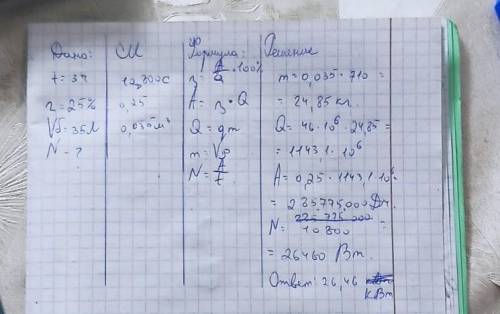 Дано:
t = 3ч
η = 25%
Vб = 35л
N - ?
СИ
10800с
0,25
0,035м³
Формула:
η = A/Q · 100%
A = η · Q
Q = qm
m = Vρ
N = A/t
Решение
m = 0,035 · 710 =
= 24,85 кг.
Q = 46 · 10⁶ · 24,85 =
= 1143,1 · 10⁶
A = 0,25 · 1143,1 · 10⁶ =
= 285775,000 Дж.
N = 285 775 000/10 800 =
= 26460 Вт.
Ответ: 26,46
кВт